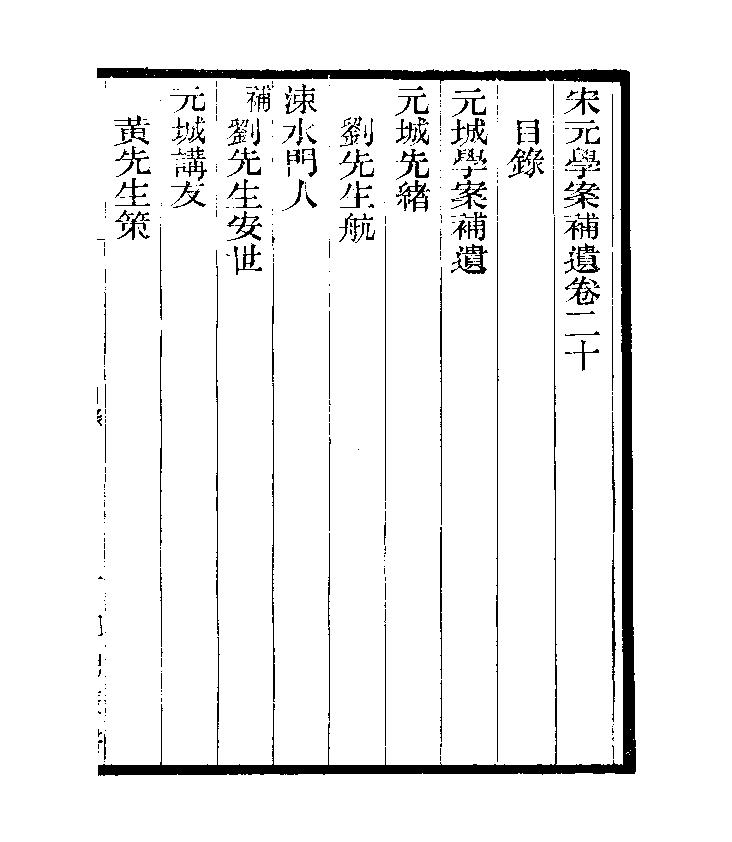 宋元學案補遺卷二十
目錄
元城學案補遺
元城先緒
劉先生航
涑水門人
補劉先生安世
元城講友
黃先生策